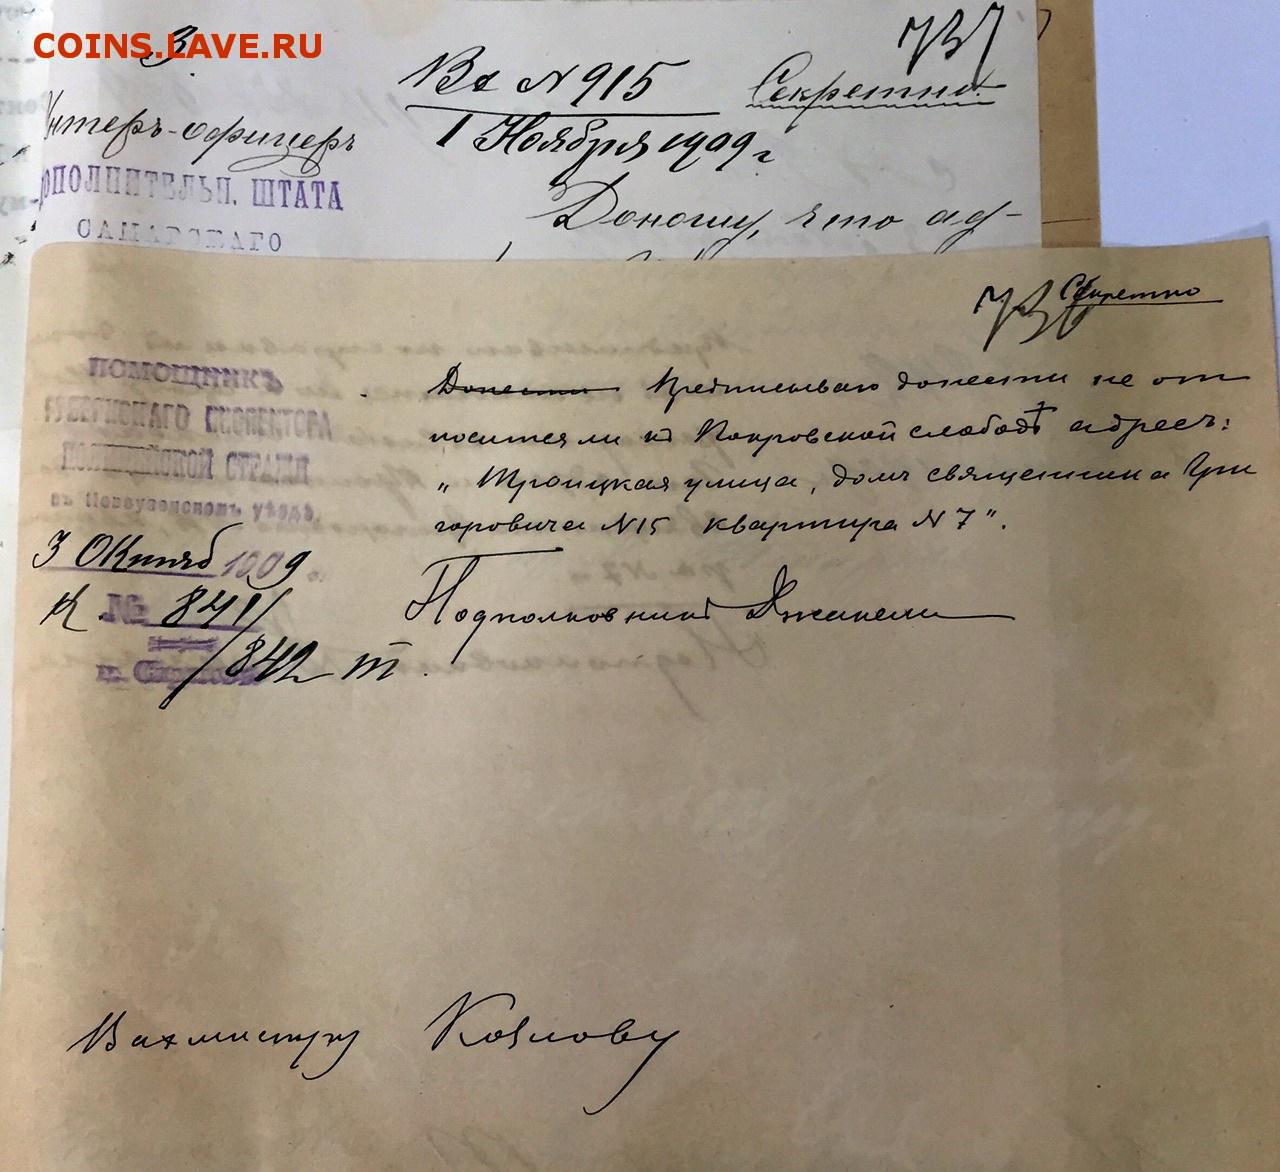 COINS.LAVE.RU
3.
Унтеръ-офицеръ
ДОПОЛНИТЕЛЬН. ШТАТА
САМАРСКАГО
Вх N 915
1 Ноября 1909 г
Секретно.
Доношу, что ад-
Секретно
ПОМОЩНИКЪ
ГУБЕРНСКАГО ИНСПЕКТОРА
ПОЛИЦЕЙСКОЙ СТРАЖИ
въ Новоузенскомъ уѣздѣ.
3 Октяб 1909 г.
№ 841/
/842
Донести Предписываю донести не от
носится ли къ Покровской слободѣ адресъ:
„Троицкая улица, домъ священника Гри
горовича N 15 квартира N 7".
Подполковникъ Джакели
Вахмистру Козлову